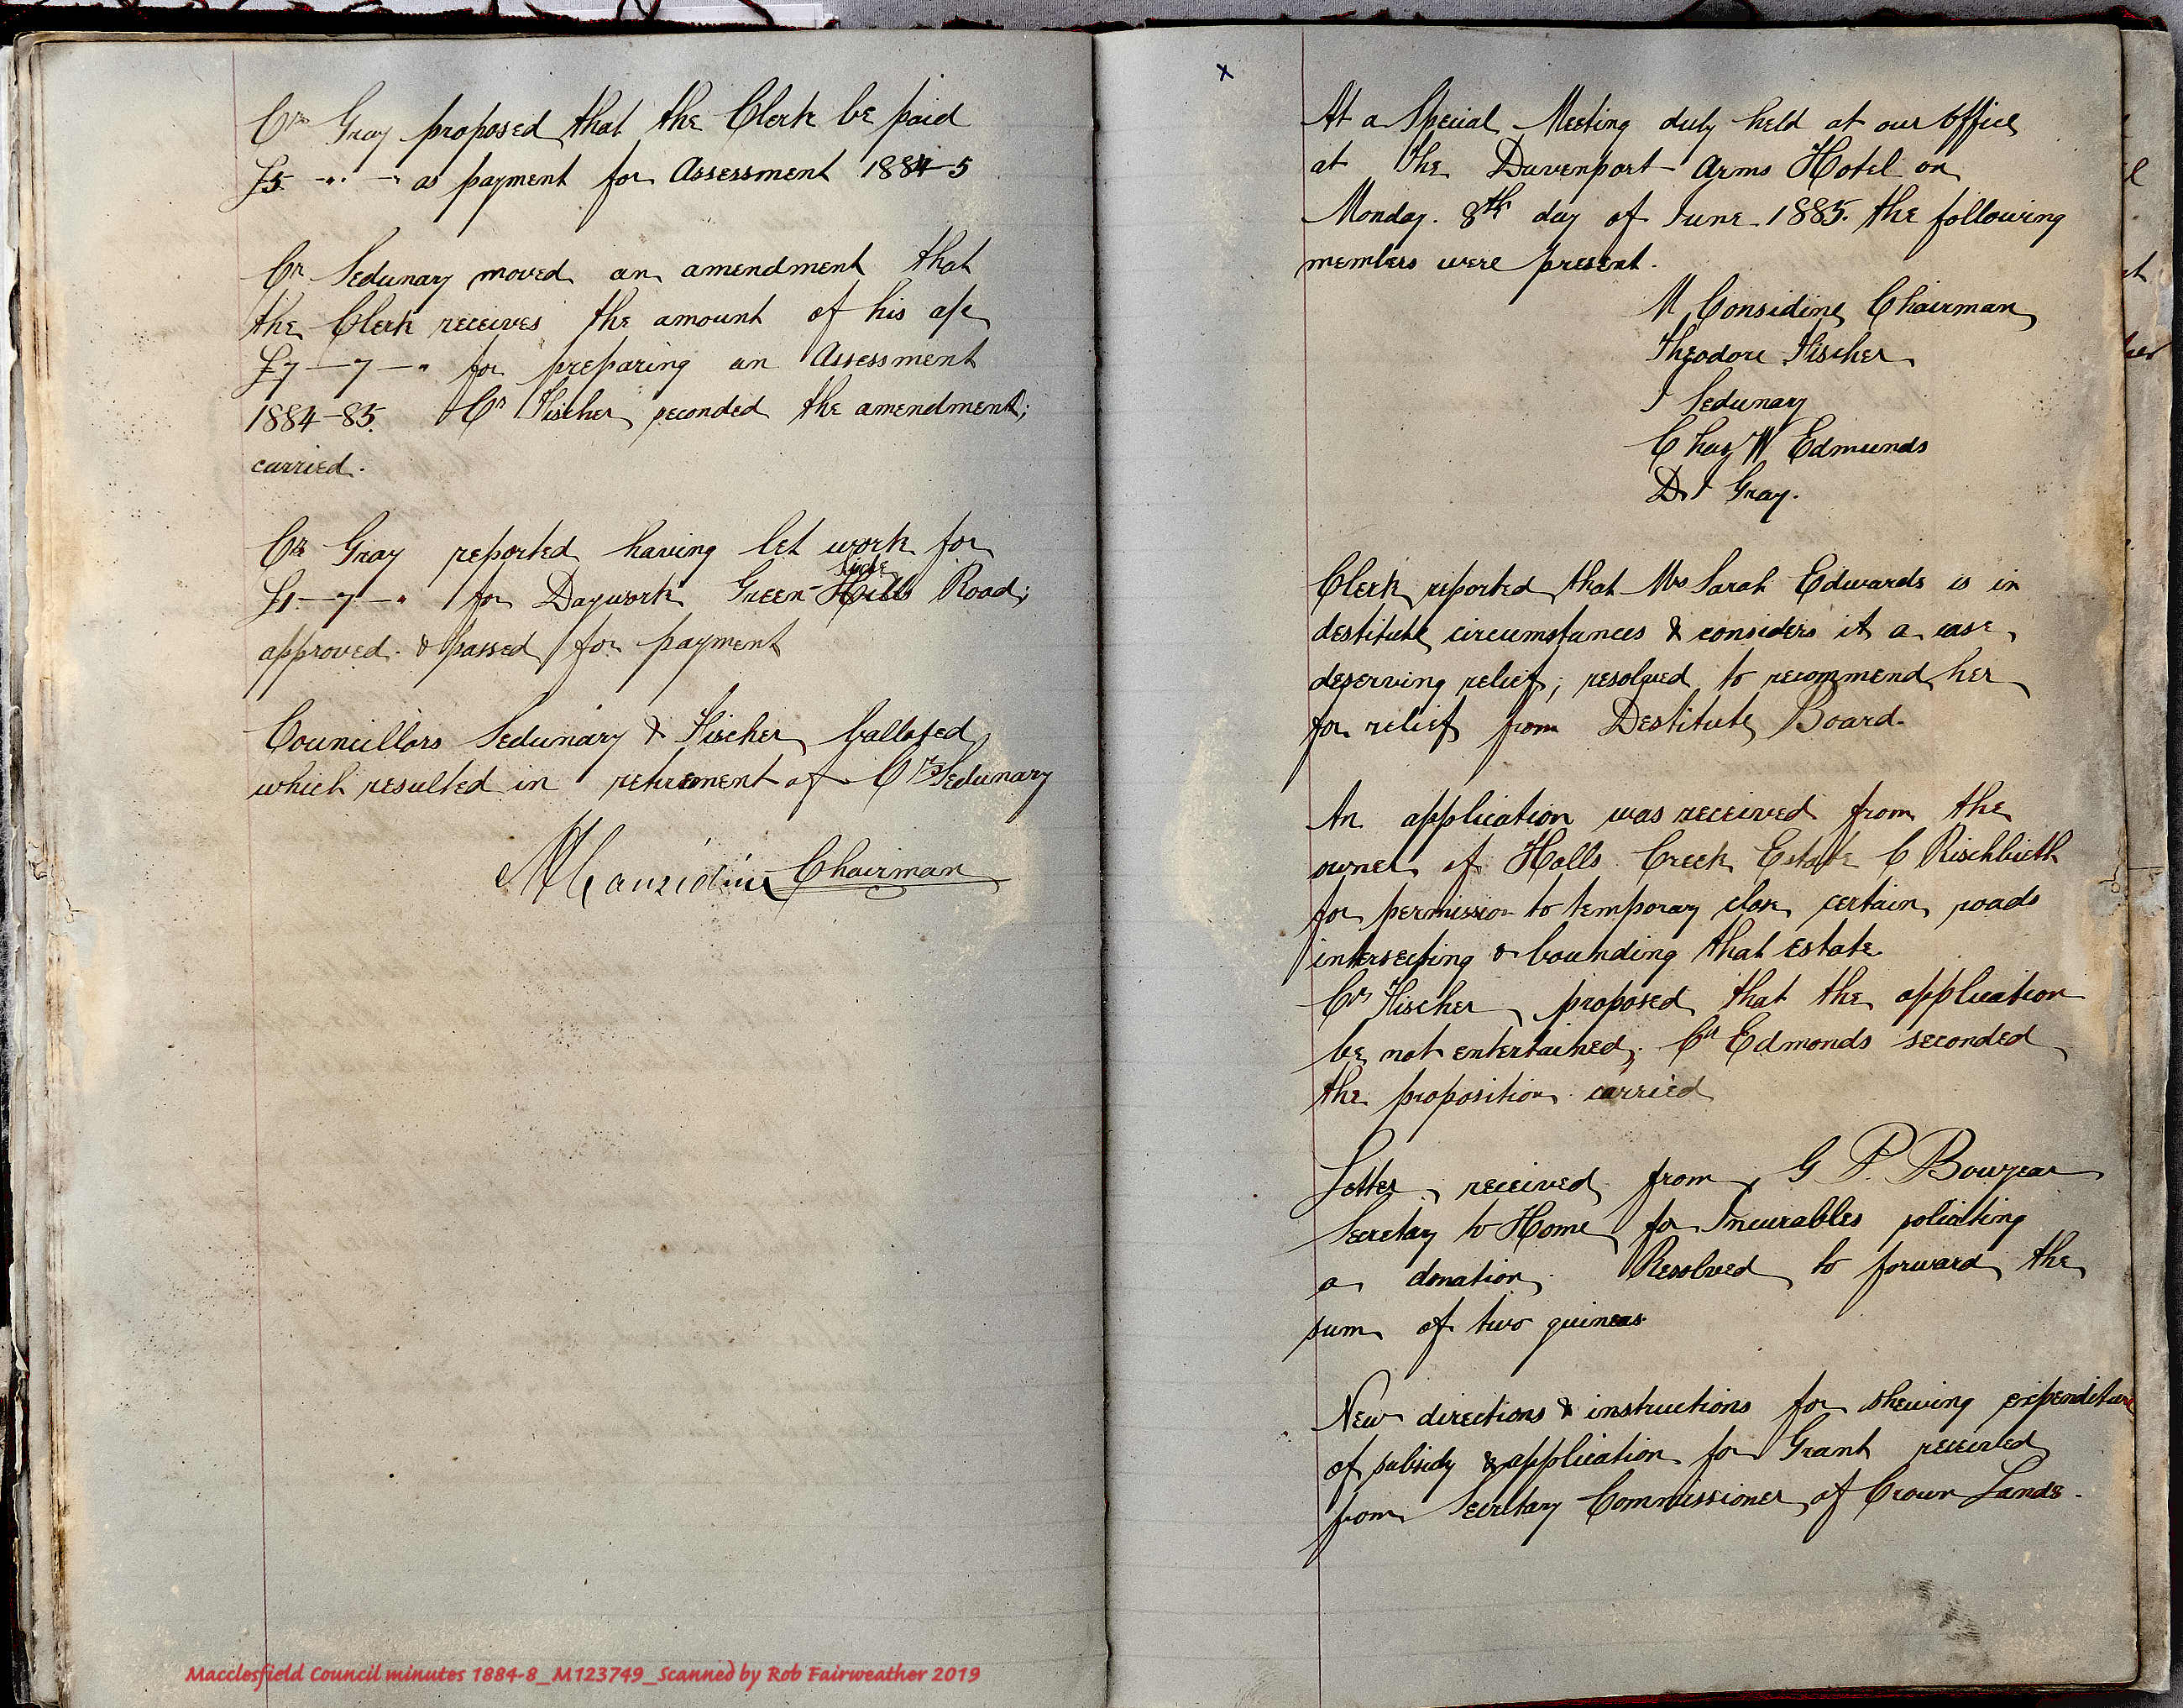 Cr Gray proposed that the Clerk be paid
£5 - " - " as payment for Assessment 1884-5
Cr Sedunary moved an amendment that
the Clerk receives the amount of his a/c
£7 - 7 - " for preparing an Assessment
1884-85. Cr Fischer seconded the amendment;
carried.
Cr Gray reported having let work for
Side
£1 - 7 - " for Daywork Green Hills Road;
approved & passed for payment
Councillors Sedunary & Fischer balloted
which resulted in retirement of Cr Sedunary
M Considine Chairman
x
At a Special Meeting duly held at our office
at the Davenport Arms Hotel on
Monday 8th day of June 1885. the following
members were present.
M Considine Chairman
Theodore Fischer
J Sedunary
Chas W Edmunds
D J Gray.
Clerk reported that Mrs Sarah Edwards is in
destitute circumstances & considers it a case
deserving relief; resolved to recommend her
for relief from Destitute Board.
An application was received from the
owner of Halls Creek Estate C Rischbieth
for permission to temporary close certain roads
intersecting & bounding that estate
Cr Fischer proposed that the application
be not entertained; Cr Edmonds seconded
the proposition carried
Letter received from G P. Bowyear
Secretary to Home for Incurables soliciting
a donation. Resolved to forward the
sum of two guineas.
New directions & instructions for shewing expenditure
of subsidy & application for Grant received
from Secretary Commissioner of Crown Lands.
Macclesfield Council minutes 1884-8_M123749_Scanned by Rob Fairweather 2019